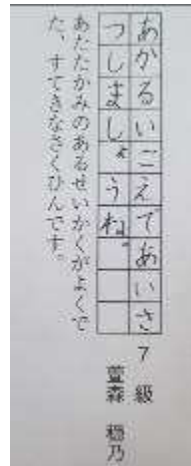 あかるいこえであいさ
つしましょうね。
7級
萱森 穏乃
あたたかみのあるせいかくがよくで
た、すてきなさくひんです。